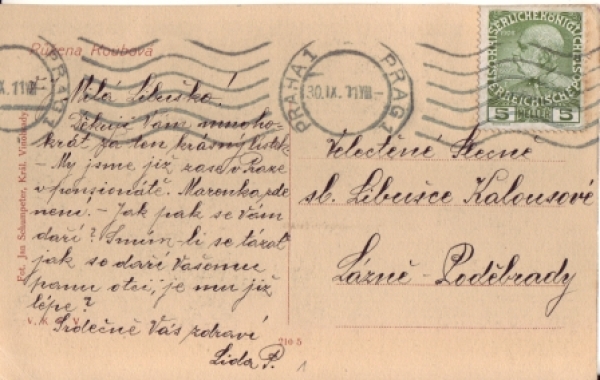 Růžena Roubová
Milá Libuško!
Děkuji Vám mnoho-
krát za ten krásný lístek
- My jsme již zase v Praze
v pensionátě. Marenka zde
není. - Jak pak se Vám
daří? Smím-li se tázat
jak se daří Vašemu
panu otci, je mu již
lépe?
Srdečně Vás zdraví
Lida P.
Fot. Jan Schumpeter, Král. Vinohrady
210 5
1
PRAHA 1
30.IX.11
PRAG 1
KAISERLICHE KÖNIGLICHE
ÖSTERREICHISCHE POST
5 HELLER 5
Velectěné Slečně
sl. Libušce Kalousové
Lázně-Poděbrady